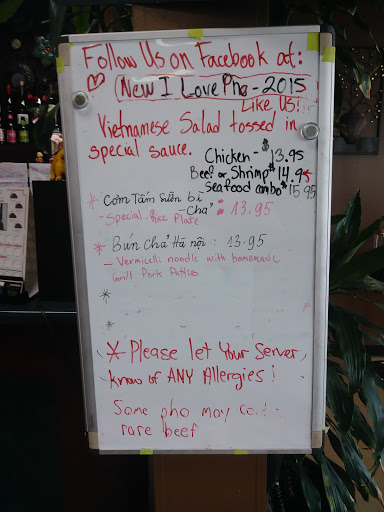 Follow Us on Facebook at:
New I Love Pho - 2015
Like Us!
Vietnamese Salad tossed in
special sauce.
Chicken - $13.95
Beef or Shrimp $14.95
Seafood combo $15.95
* Cơm Tấm Sườn bì
- Chả : 13.95
- Special Rice Plate
* Bún Chả Hà nội : 13.95
- Vermicelli noodle with homemade
Grill Pork Patties
*
*
* Please let Your Server
know of ANY Allergies!
Some pho may
rare beef